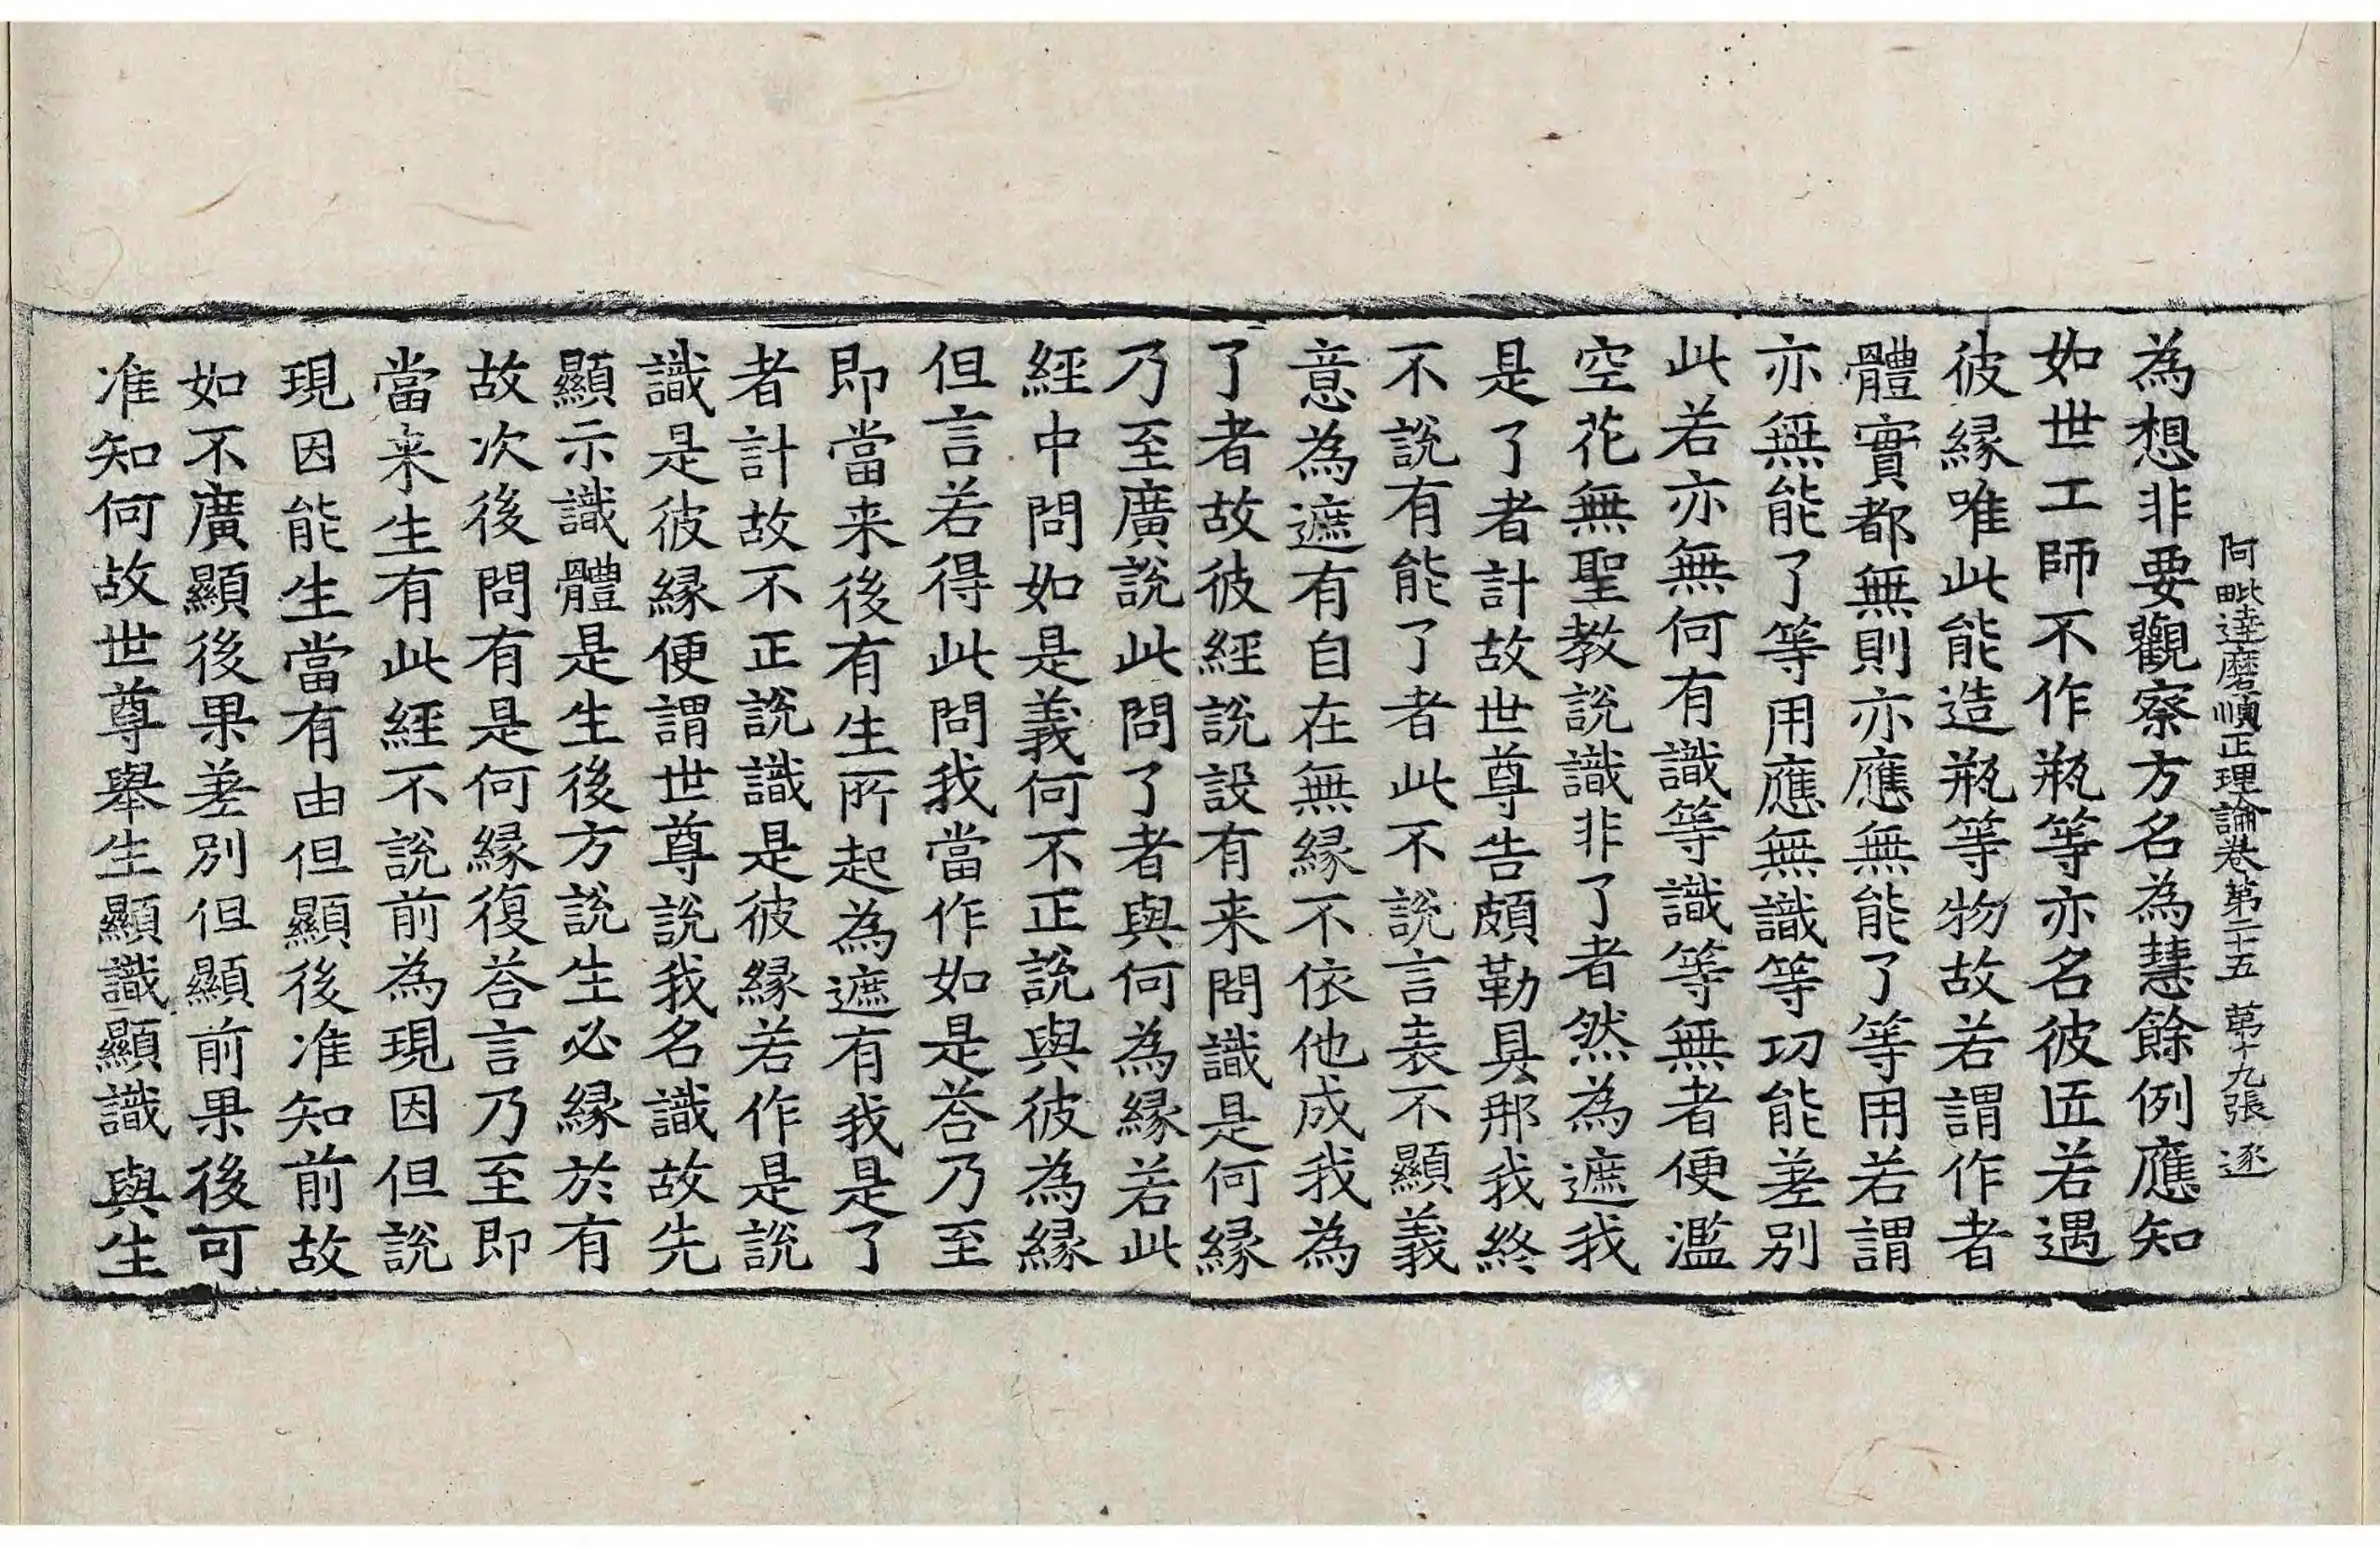 阿毗達磨順正理論卷第二十五 第十九張 逐
為想非要觀察方名為慧餘例應知
如世工師不作瓶等亦名彼匠若遇
彼縁唯此能造瓶等物故若謂作者
體實都無則亦應無能了等用若謂
亦無能了等用應無識等功能差別
此若亦無何有識等識等無者便濫
空花無聖教說識非了者然為遮我
是了者計故世尊告頗勒具那我終
不說有能了者此不說言表不顯義
意為遮有自在無縁不依他成我為
了者故彼經說設有来問識是何縁
乃至廣說此問了者與何為縁若此
經中問如是義何不正說與彼為縁
但言若得此問我當作如是荅乃至
即當来後有生所起為遮有我是了
者計故不正說識是彼縁若作是說
識是彼縁便謂世尊說我名識故先
顯示識體是生後方說生必縁於有
故次後問有是何縁復荅言乃至即
當来生有此經不說前為現因但說
現因能生當有由但顯後准知前故
如不廣顯後果差別但顯前果後可
准知何故世尊舉生顯識顯識與生